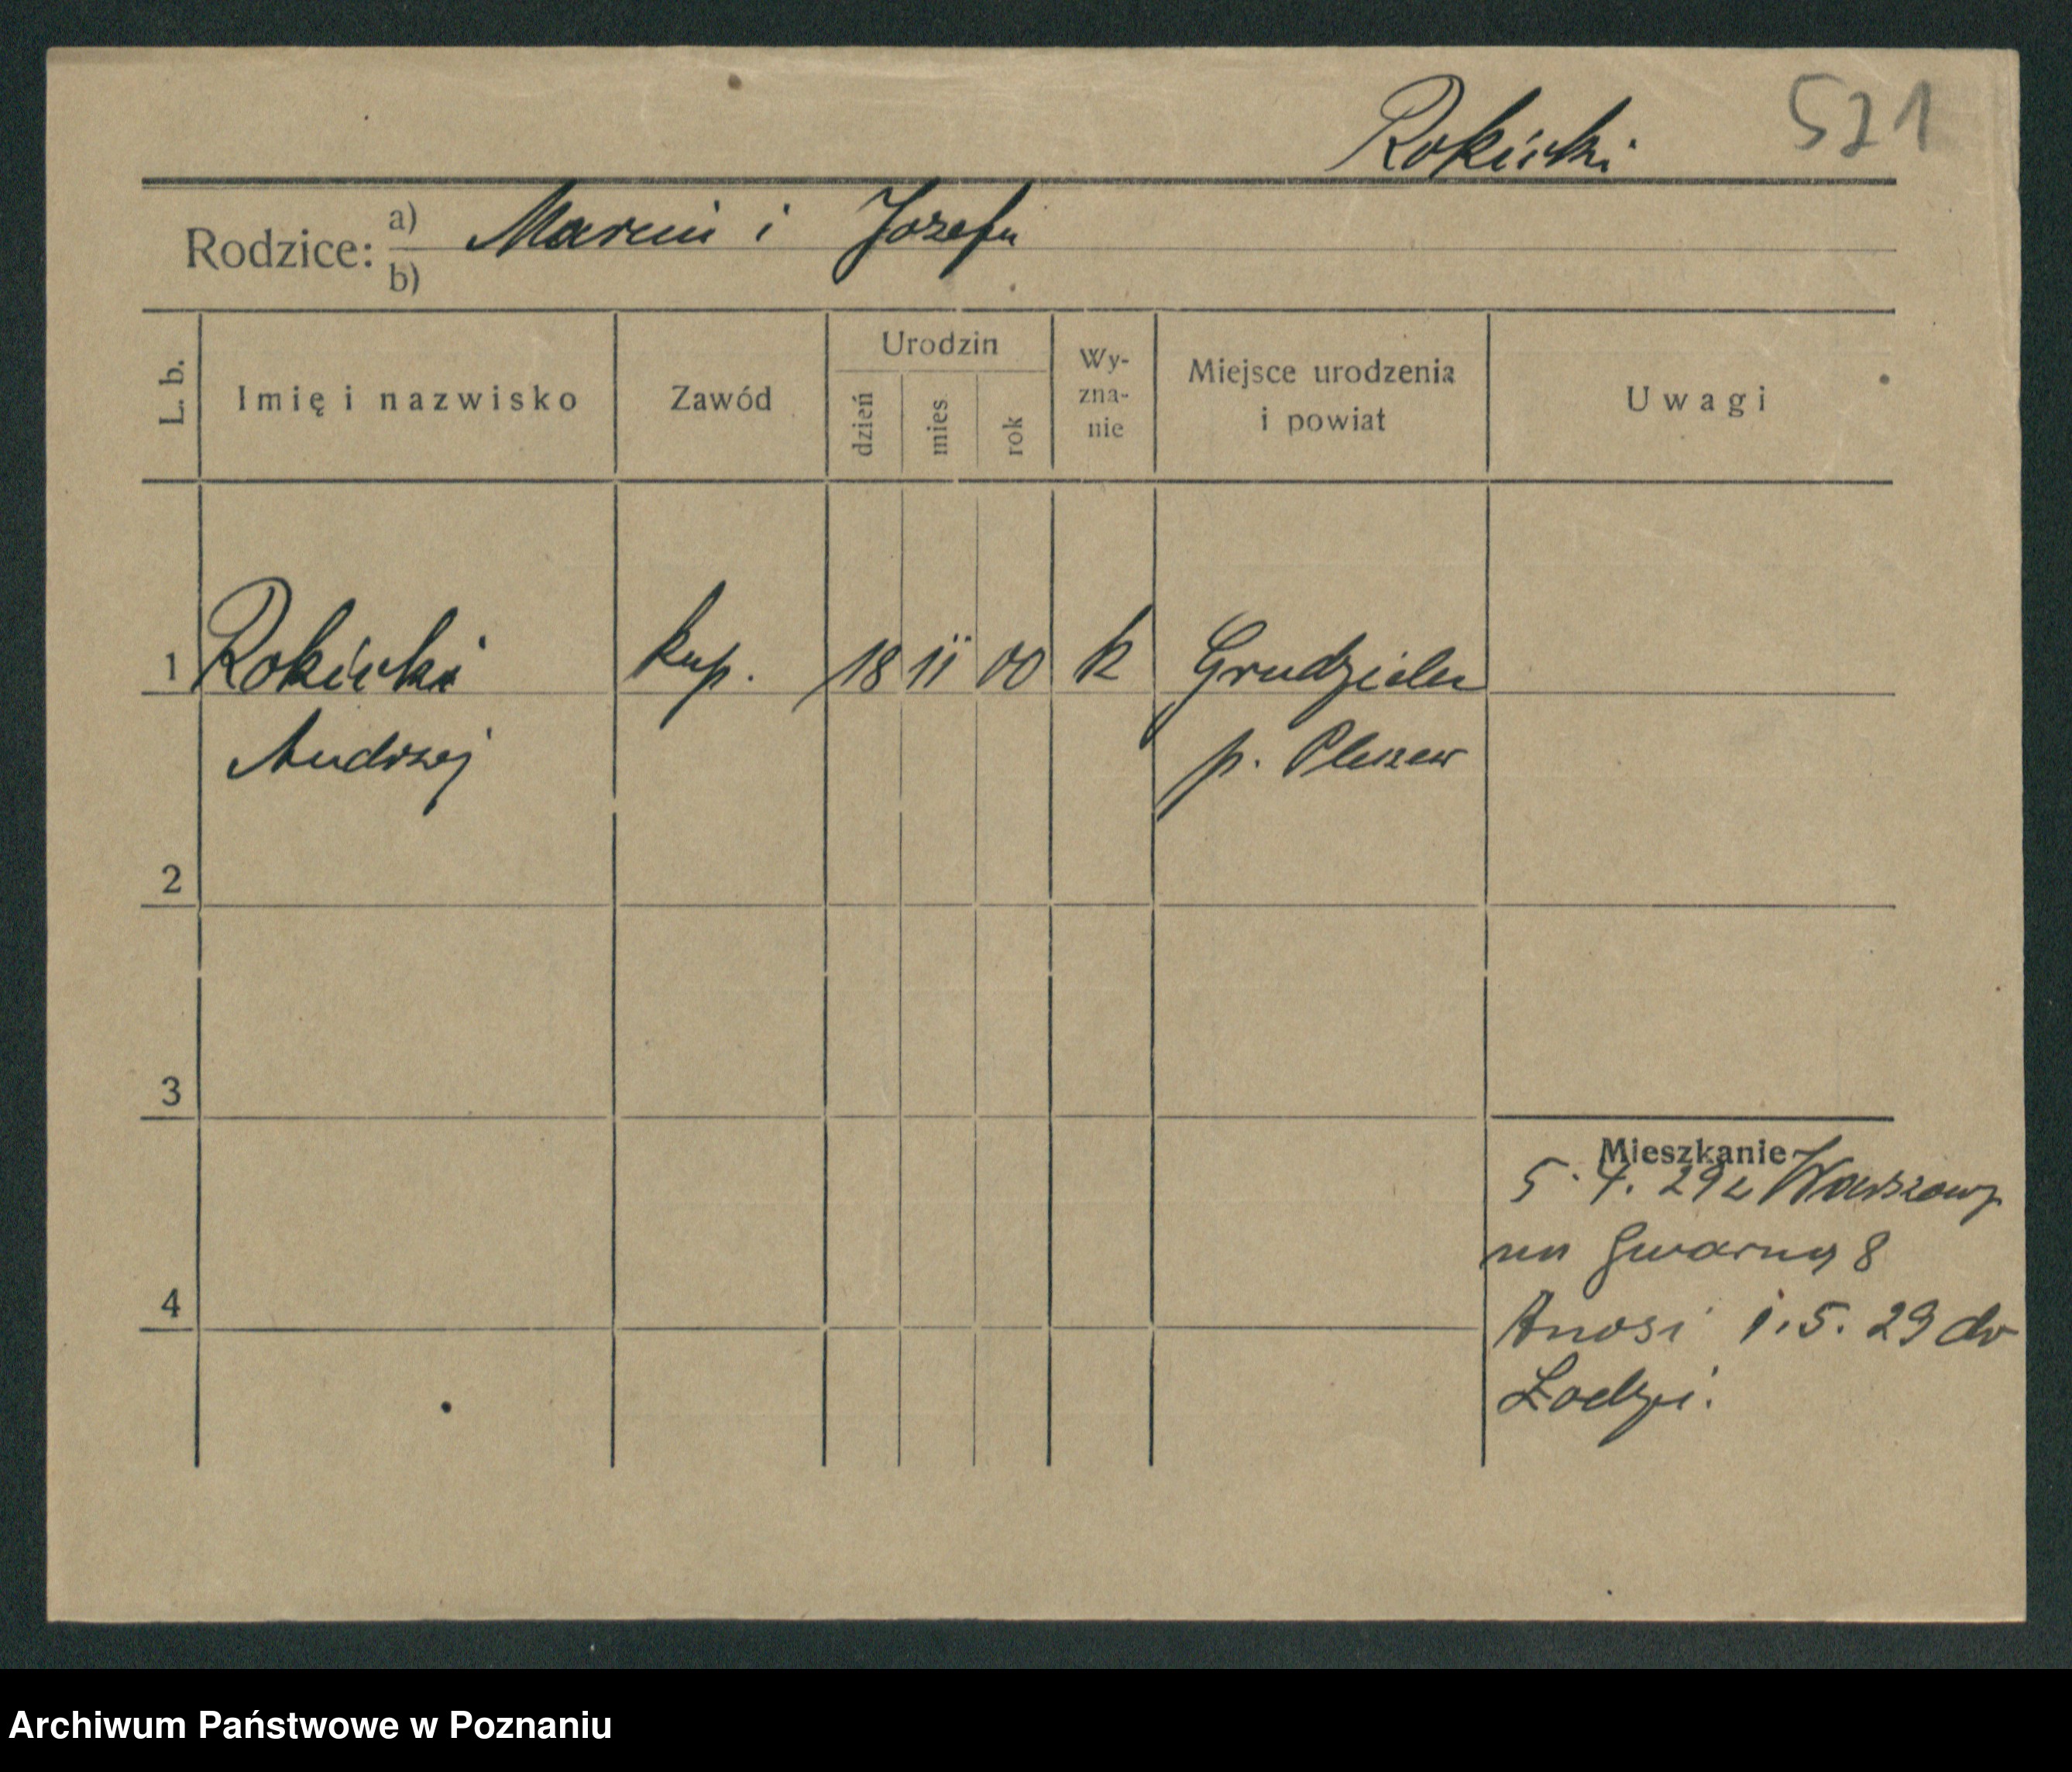 Rokicki 521
Rodzice: a) Marcin i Józefa
b)
L. b. Imię i nazwisko Zawód Urodzin dzień mies rok Wy-zna-nie Miejsce urodzenia i powiat Uwagi
1 Rokicki kup. 18 11 00 k Grudzielec
Andrzej p. Pleszew
2
3
4
Mieszkanie
5. 4. 29 z Warszawy
na Gwarną 8
1. 5. 29 do
Łodzi.
Archiwum Państwowe w Poznaniu